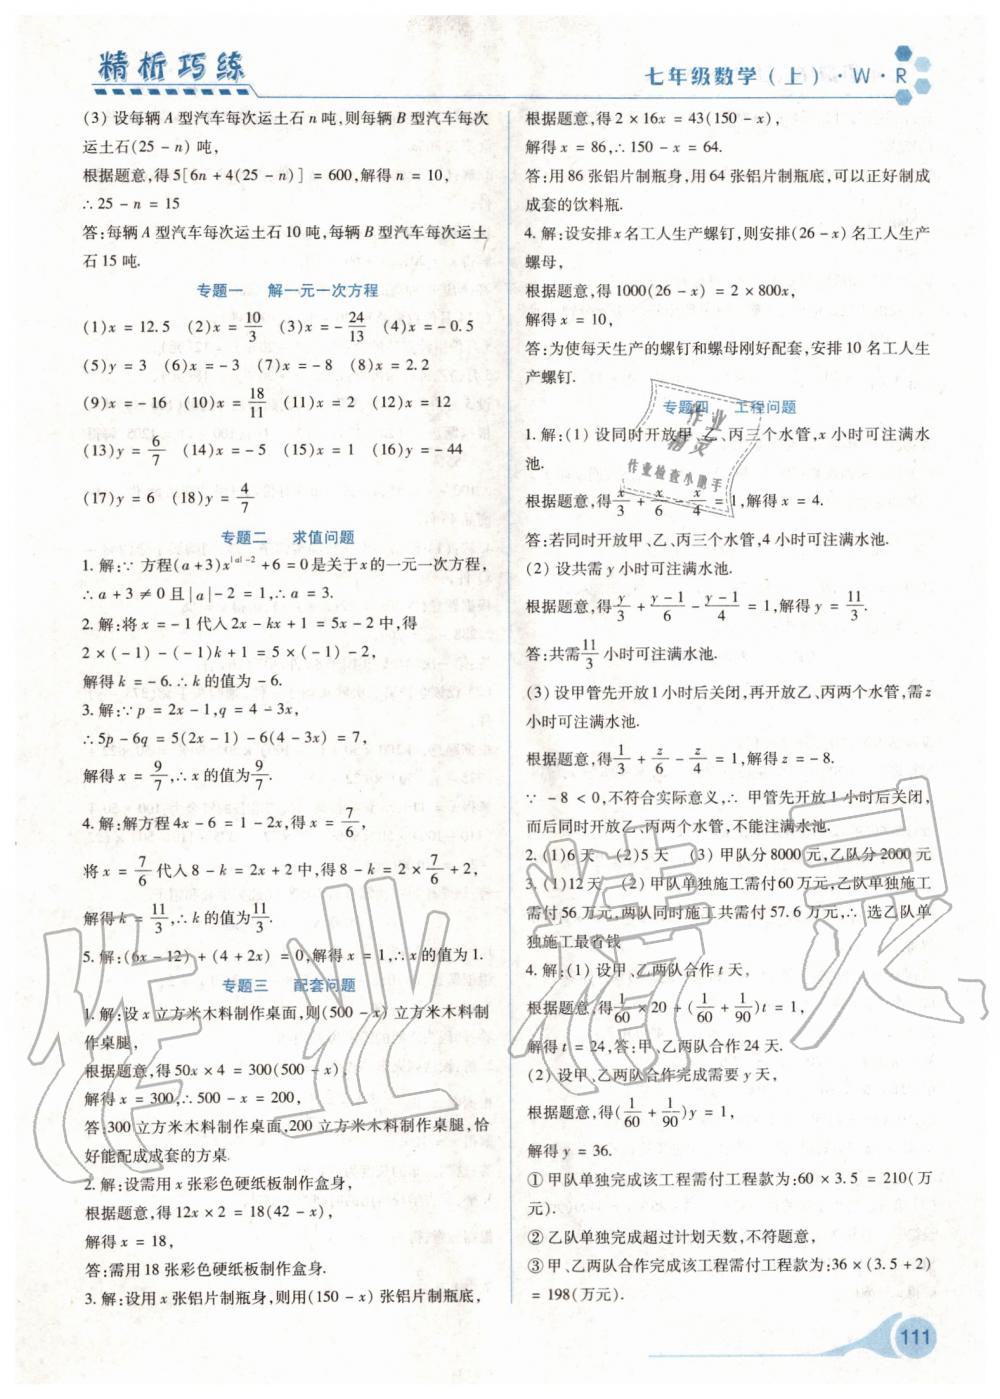 精析巧练
七年级数学(上)·W·R
(3) 设每辆 A 型汽车每次运土石 n 吨,则每辆 B 型汽车每次
运土石(25 - n) 吨,
根据题意,得 5[6n + 4(25 - n)] = 600,解得 n = 10,
∴ 25 - n = 15
答:每辆 A 型汽车每次运土石 10 吨,每辆 B 型汽车每次运土
石 15 吨.
专题一 解一元一次方程
(1)x = 12.5 (2)x = 10/3 (3)x = - 24/13 (4)x = - 0.5
(5)y = 3 (6)x = - 3 (7)x = - 8 (8)x = 2.2
(9)x = - 16 (10)x = 18/11 (11)x = 2 (12)x = 12
(13)y = 6/7 (14)x = - 4 (15)x = 6 (16)y = - 44
(17)y = 6 (18)y = 4/7
专题二 求值问题
1. 解:∵ 方程(a + 3)x^(|a|-2) + 6 = 0是关于x的一元一次方程,
∴ a + 3 ≠ 0 且 |a| - 2 = 1,∴ a = 3.
2. 解:将 x = - 1 代入 2x - kx + 1 = 5x - 2 中,得
2 × (- 1) - (- 1)k + 1 = 5 × (- 1) - 2,
解得 k = - 6. ∴ k 的值为 - 6.
3. 解:∵ p = 2x - 1,q = 4 - 3x,
∴ 5p - 6q = 5(2x - 1) - 6(4 - 3x) = 7,
解得 x = 9/7,∴ x 的值为 9/7.
4. 解:解方程 4x - 6 = 1 - 2x,得 x = 7/6,
将 x = 7/6 代入 8 - k = 2x + 2 中,得 8 - k = 2 × 7/6 + 2,
解得 k = 11/3,∴ k 的值为 11/3.
5. 解:(6x - 12) + (4 + 2x) = 0,解得 x = 1,∴ x 的值为 1.
专题三 配套问题
1. 解:设 x 立方米木料制作桌面,则(500 - x) 立方米木料制
作桌腿,
根据题意,得 50x × 4 = 300(500 - x),
解得 x = 300,∴ 500 - x = 200,
答:300 立方米木料制作桌面,200 立方米木料制作桌腿,恰
好能配成成套的方桌.
2. 解:设需用 x 张彩色硬纸板制作盒身,
根据题意,得 12x × 2 = 18(42 - x),
解得 x = 18,
答:需用 18 张彩色硬纸板制作盒身.
3. 解:设用 x 张铝片制瓶身,则用(150 - x) 张铝片制瓶底,
根据题意,得 2 × 16x = 43(150 - x),
解得 x = 86,∴ 150 - x = 64.
答:用 86 张铝片制瓶身,用 64 张铝片制瓶底,可以正好制成
成套的饮料瓶.
4. 解:设安排 x 名工人生产螺钉,则安排(26 - x) 名工人生产
螺母,
根据题意,得 1000(26 - x) = 2 × 800x,
解得 x = 10,
答:为使每天生产的螺钉和螺母刚好配套,安排 10 名工人生
产螺钉.
专题四 工程问题
1. 解:(1) 设同时开放甲、乙、丙三个水管,x 小时可注满水
池.
根据题意,得 x/3 + x/6 - x/4 = 1,解得 x = 4.
答:若同时开放甲、乙、丙三个水管,4 小时可注满水池.
(2) 设共需 y 小时可注满水池.
根据题意,得 y/3 + (y - 1)/6 - (y - 1)/4 = 1,解得 y = 11/3.
答:共需 11/3 小时可注满水池.
(3) 设甲管先开放 1 小时后关闭,再开放乙、丙两个水管,需 z
小时可注满水池.
根据题意,得 1/3 + z/6 - z/4 = 1,解得 z = - 8.
∵ - 8 < 0,不符合实际意义,∴ 甲管先开放 1 小时后关闭,
而后同时开放乙、丙两个水管,不能注满水池.
2. (1)6 天 (2)5 天 (3) 甲队分 8000 元,乙队分 2000 元
3. (1)12 天 (2) 甲队单独施工需付 60 万元,乙队单独施工
需付 56 万元,两队同时施工共需付 57.6 万元,∴ 选乙队单
独施工最省钱
4. 解:(1) 设甲、乙两队合作 t 天,
根据题意,得 1/60 × 20 + (1/60 + 1/90)t = 1,
解得 t = 24,答:甲、乙两队合作 24 天.
(2) 设甲、乙两队合作完成需要 y 天,
根据题意,得(1/60 + 1/90)y = 1,
解得 y = 36.
① 甲队单独完成该工程需付工程款为:60 × 3.5 = 210(万
元).
② 乙队单独完成超过计划天数,不符题意,
③ 甲、乙两队合作完成该工程需付工程款为:36 × (3.5 + 2)
= 198(万元).
111
作业
精灵
作业检查小助手
作业精灵